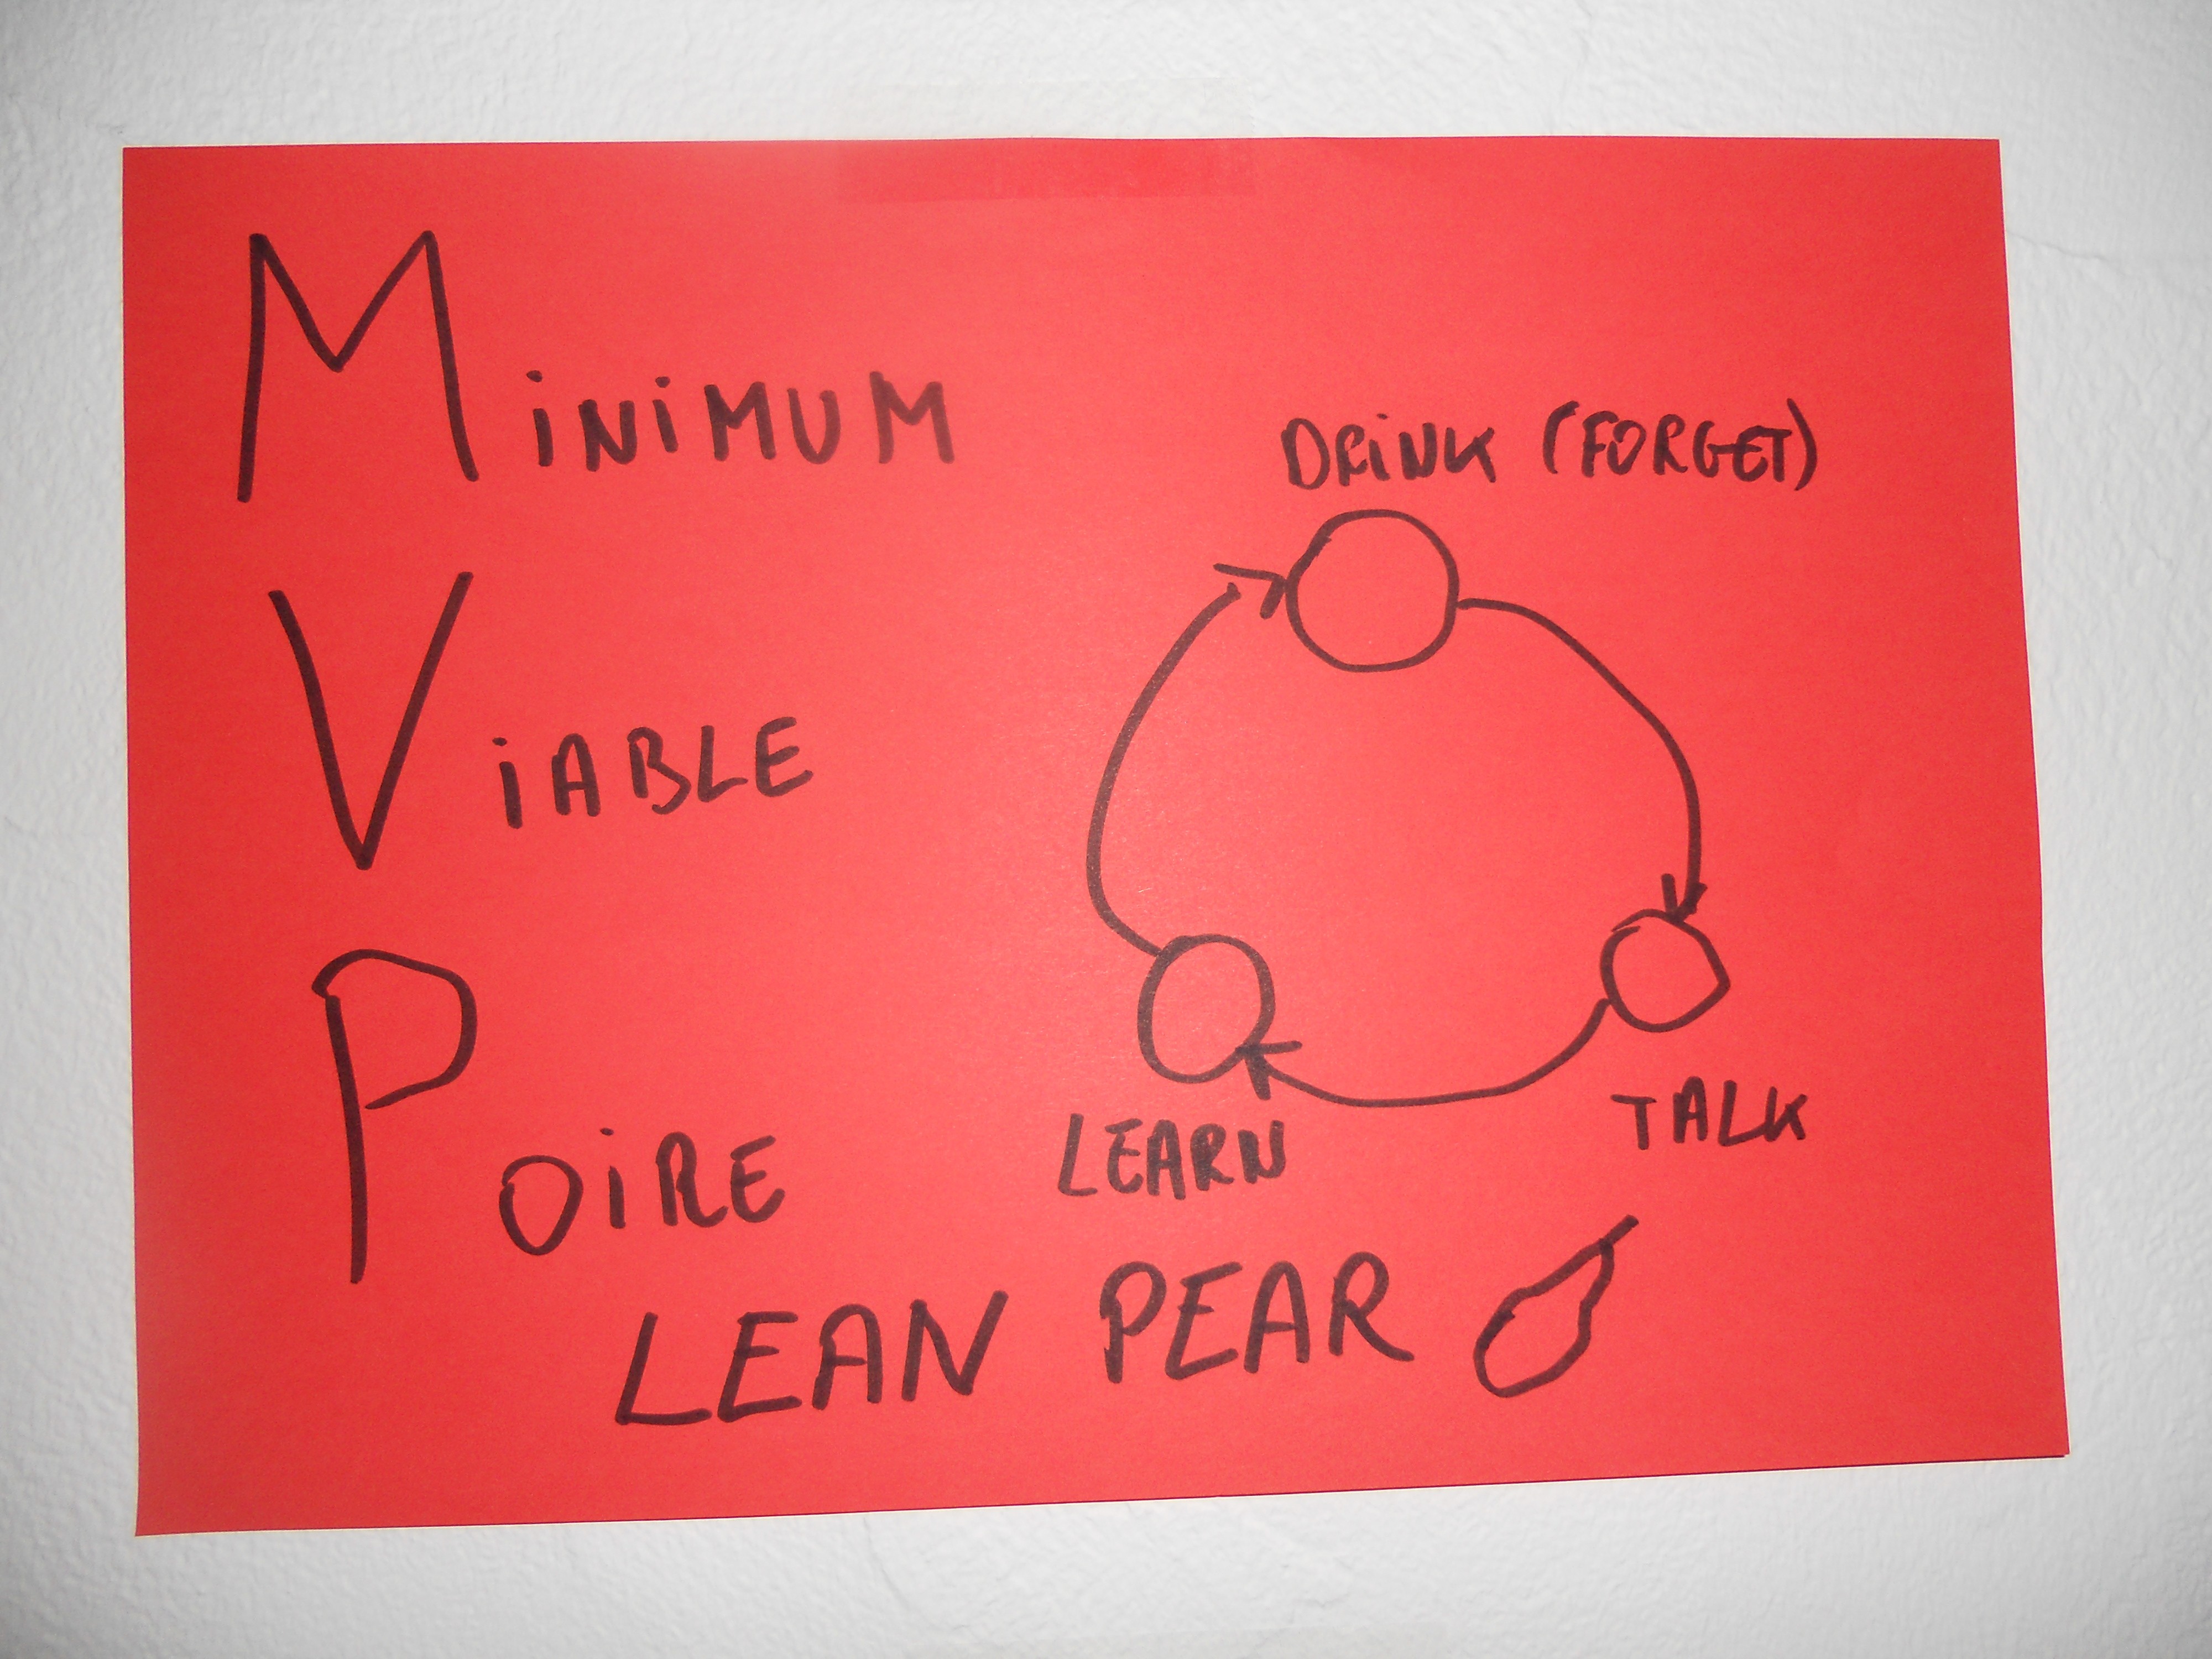 MiNiMUM
ViABLE
POiRE
DRiNK (FORGET)
TALK
LEARN
LEAN PEAR